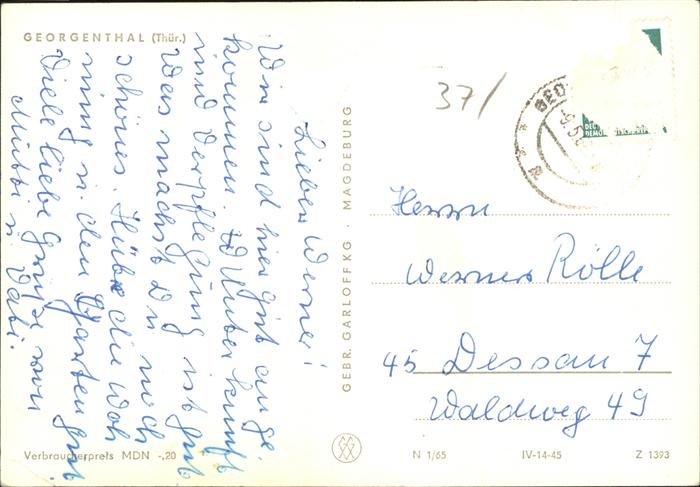 GEORGENTHAL (Thür.)
Lieber Werner!
Wir sind hier gut ange-
kommen. Unterkunft
und Verpflegung ist gut
Was machst Du noch
schönes. Hübe die Woh
nung u. den Garten gut
Viele liebe Grüße von
Mutti u. Vati.
Verbraucherpreis MDN -,20
GEBR. GARLOFF KG · MAGDEBURG
37/
GEO
Herrn
Werner Rölle
45 Dessau 7
Waldweg 49
N 1/65 IV-14-45 Z 1393